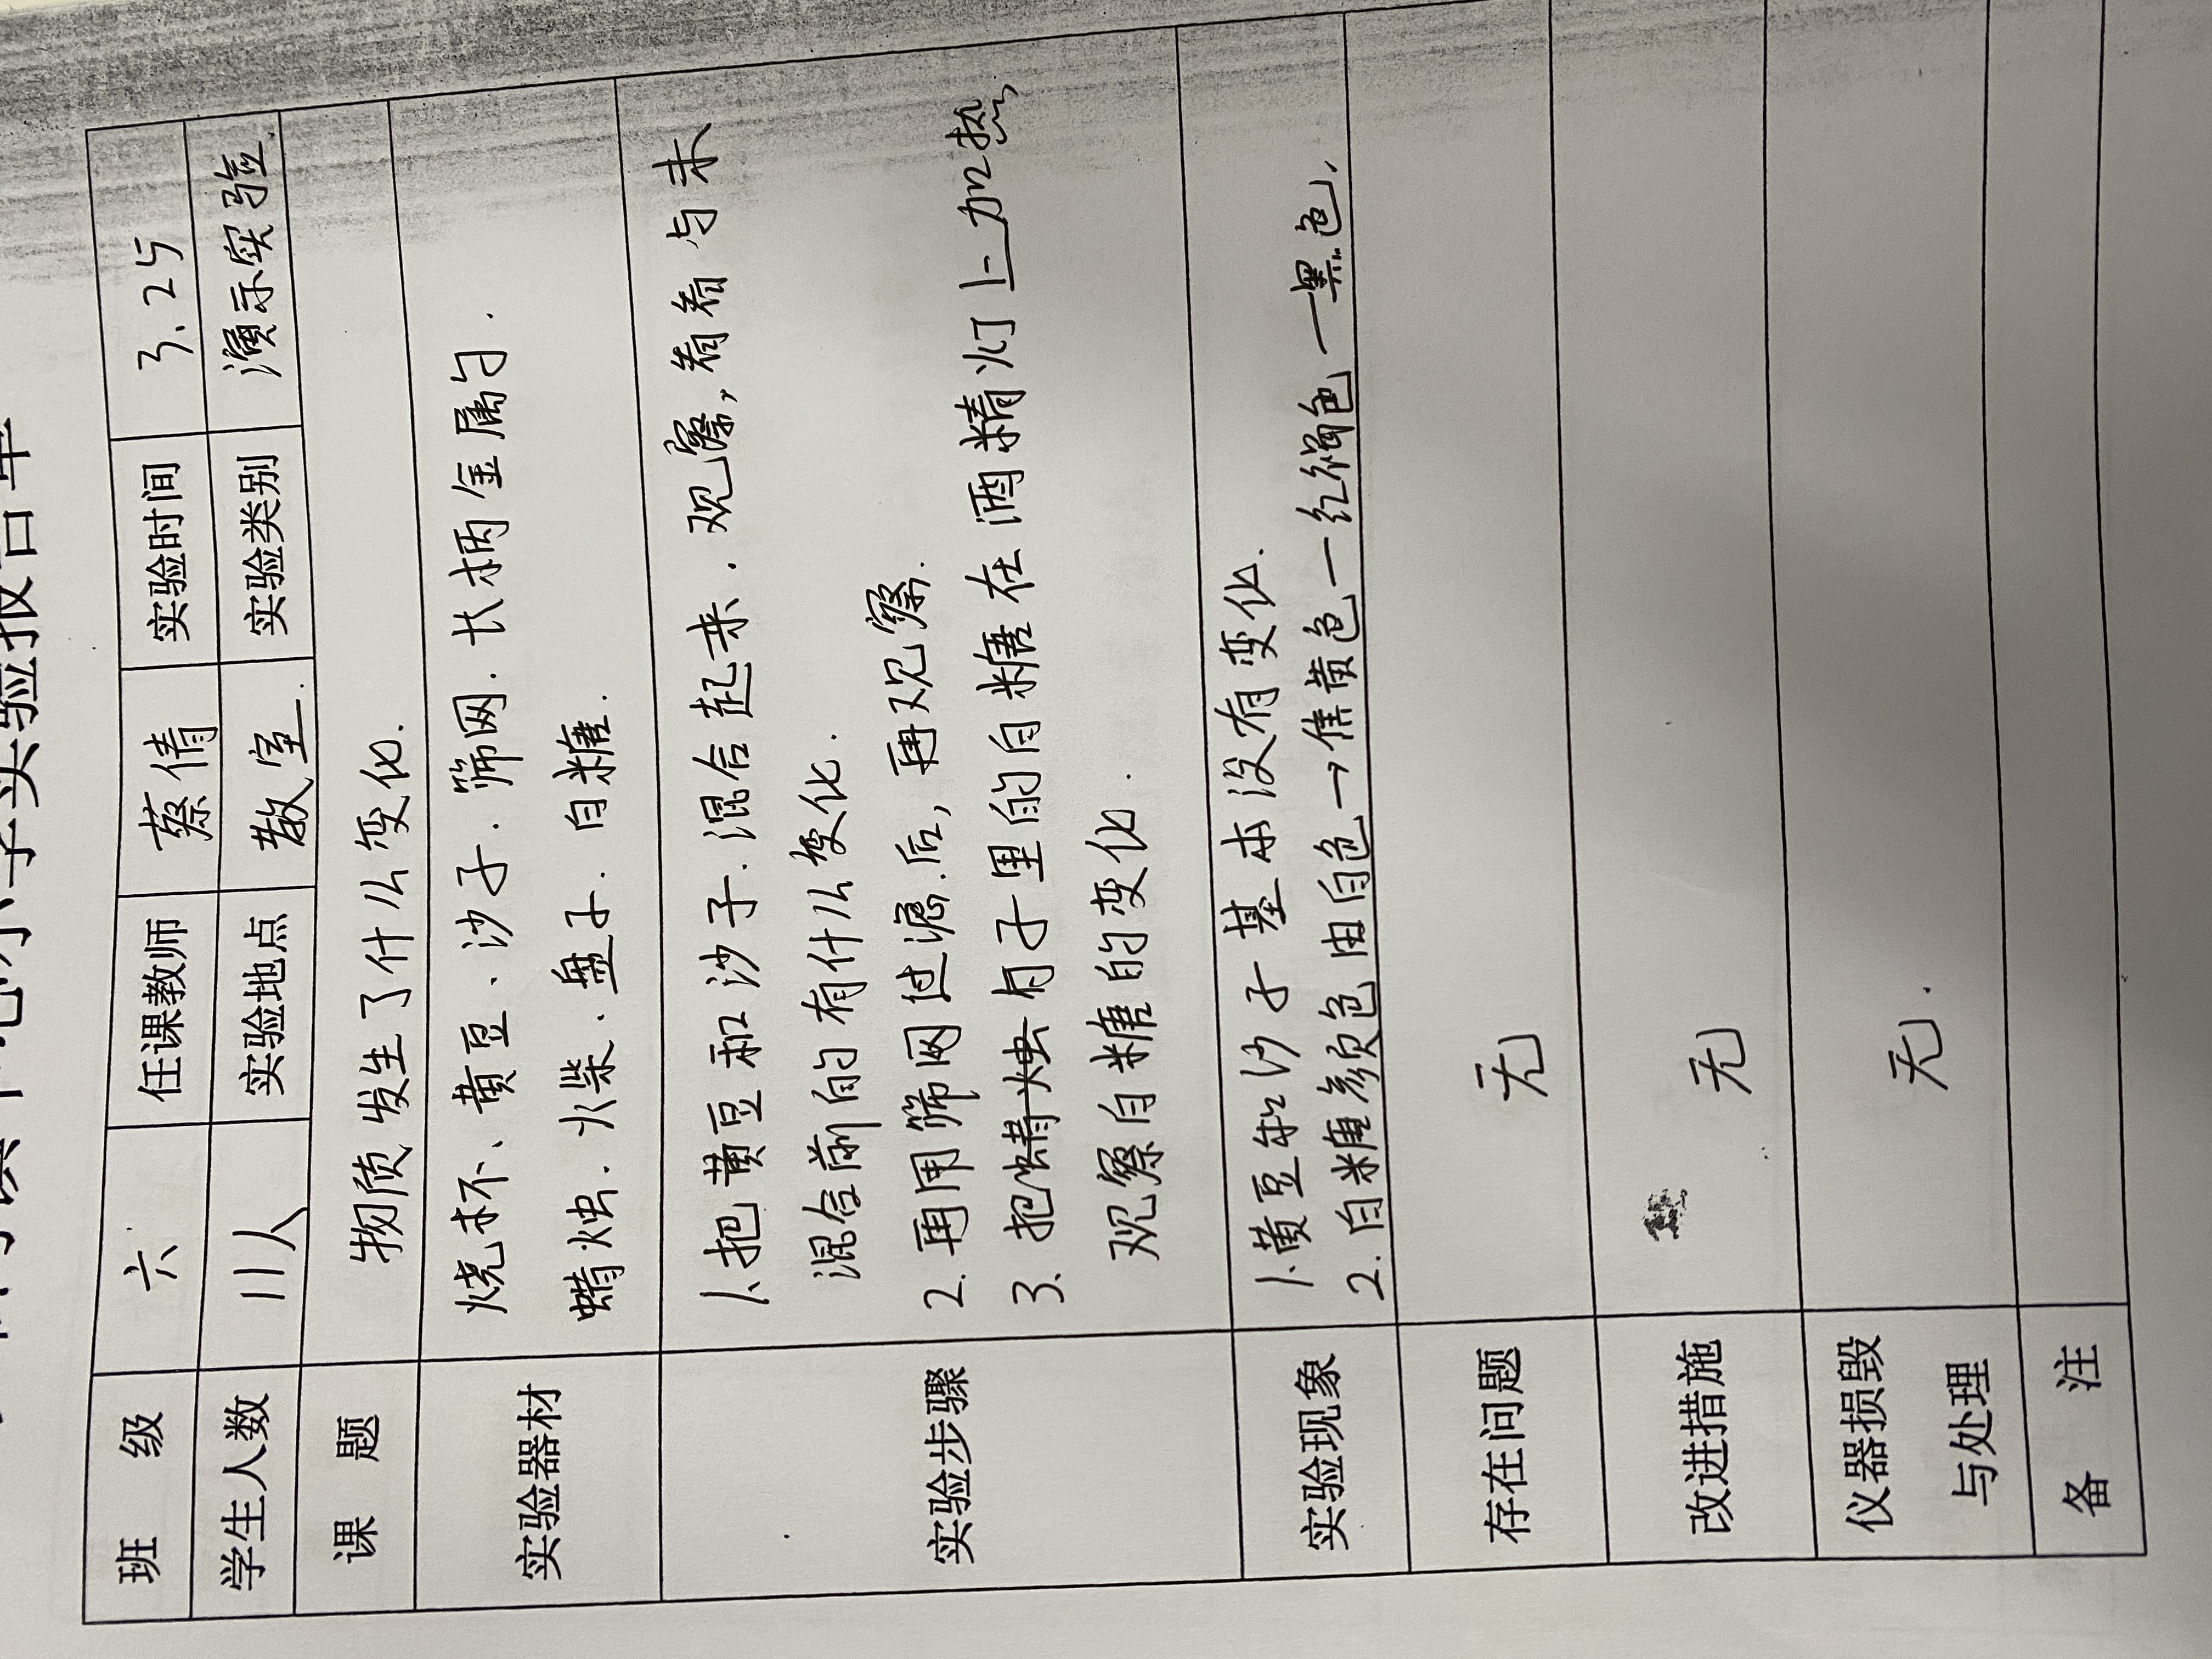 小学实验报告单
班 级 六 任课教师 蔡倩 实验时间 3.25
学生人数 11人 实验地点 教室. 实验类别 演示实验.
课 题 物质发生了什么变化.
实验器材 烧杯、黄豆、沙子.筛网.长柄金属勺.
蜡烛.火柴.盘子.白糖.
1.把黄豆和沙子.混合起来.观察,看看与未
混合前的有什么变化.
2.再用筛网过滤后,再观察.
实验步骤
3.把蜡烛勺子里的白糖在酒精灯上加热,
观察白糖的变化.
1.黄豆和沙子基本没有变化.
实验现象
2.白糖颜色由白色→焦黄色—红褐色—黑色.
存在问题 无
改进措施 无
仪器损毁
与处理 无.
备 注